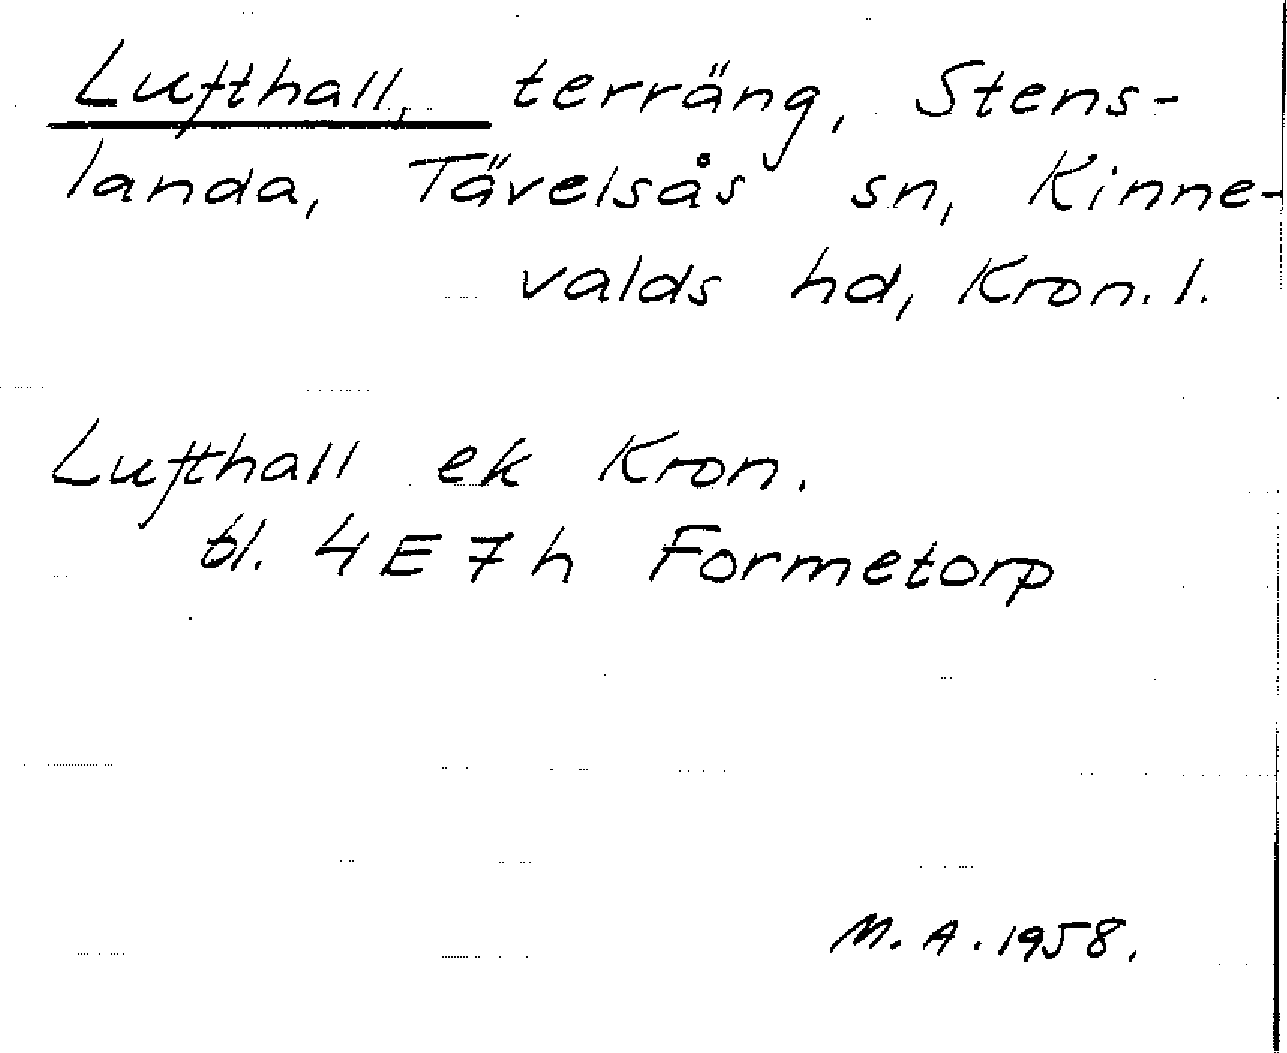 Lufthall, terräng, Stens-
landa, Tävelsås sn, Kinne-
valds hd, Kron. l.
Lufthall ek Kron.
bl. 4 E 7 h Formetorp
M. A. 1958.